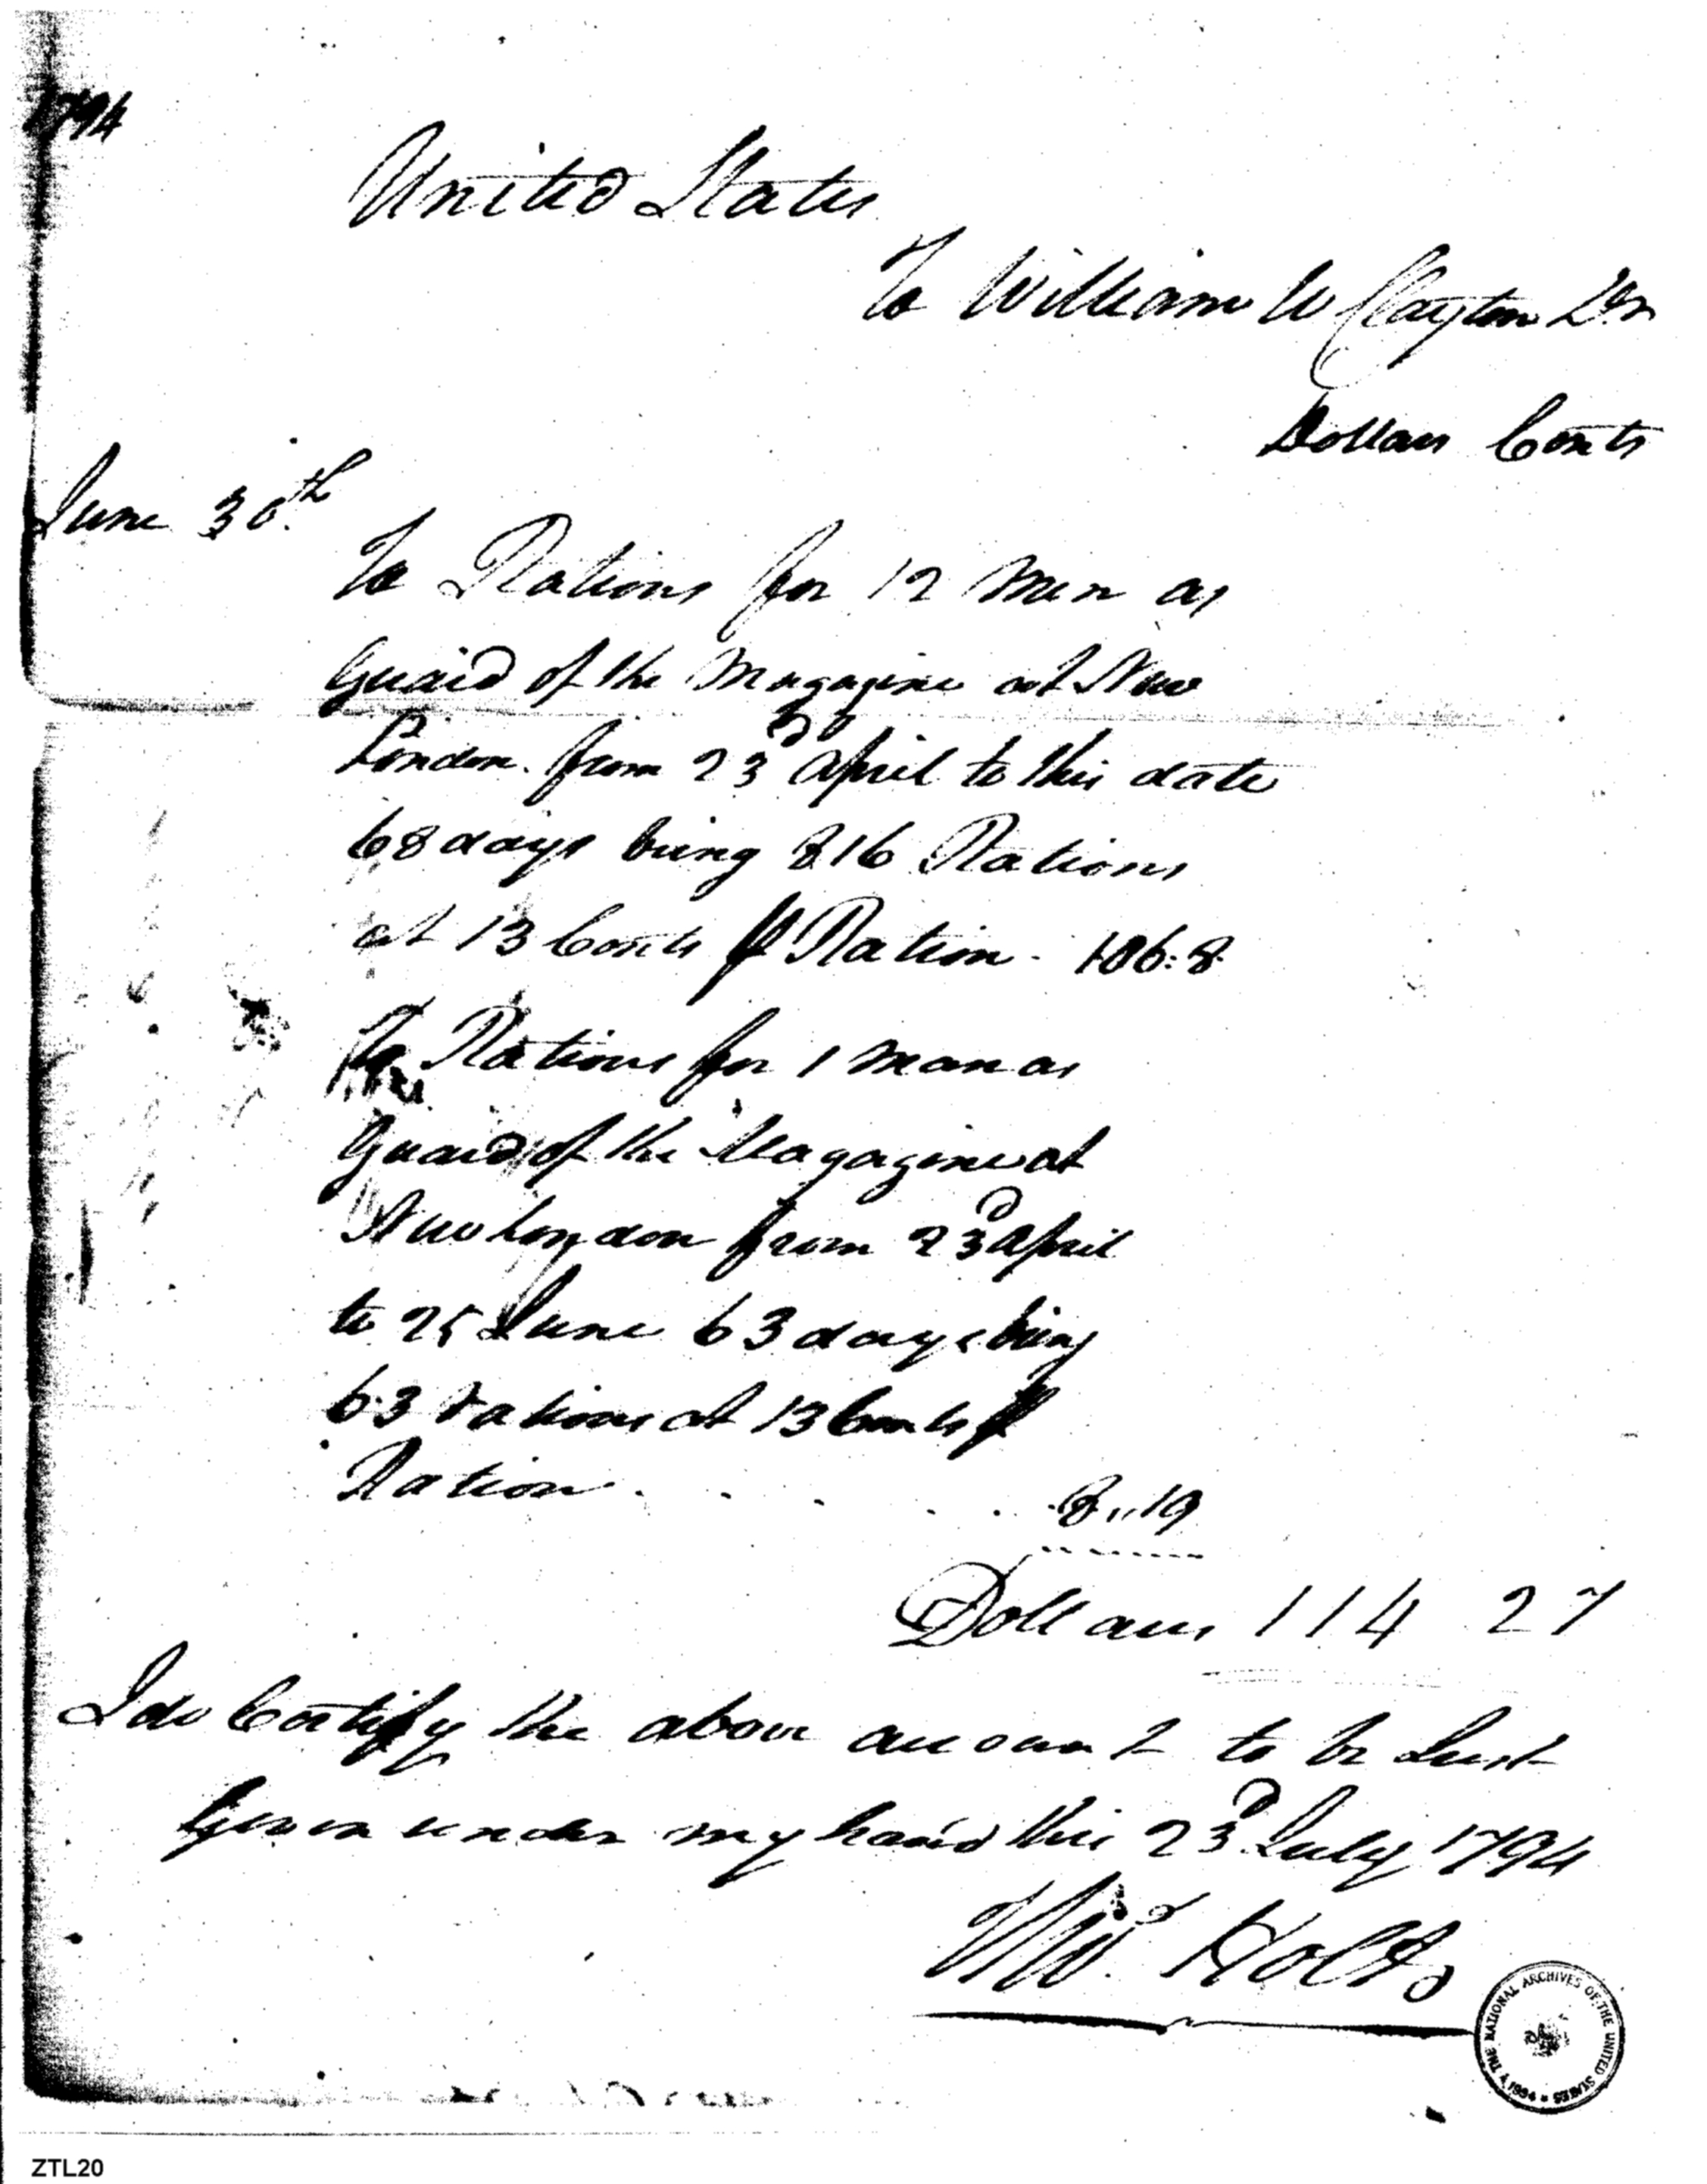 1794
United States
To William W Clayton Dr
Dollars Cents
June 30th
To Rations for 12 Men as
Guard of the Magazine at New
London from 23d April to this date
68 days being 816 Rations
at 13 Cents ⅌ Ration - 106:8
To Rations for 1 man as
Guard of the Magazine at
New London from 23d April
to 25 June 63 days being
63 rations at 13 Cents ⅌
Ration . . . . . 8,,19
Dollars 114 27
I do Certify the above account to be Just
Given under my hand this 23d July 1794
Thos Holt
THE NATIONAL ARCHIVES OF THE UNITED STATES 1934
ZTL20